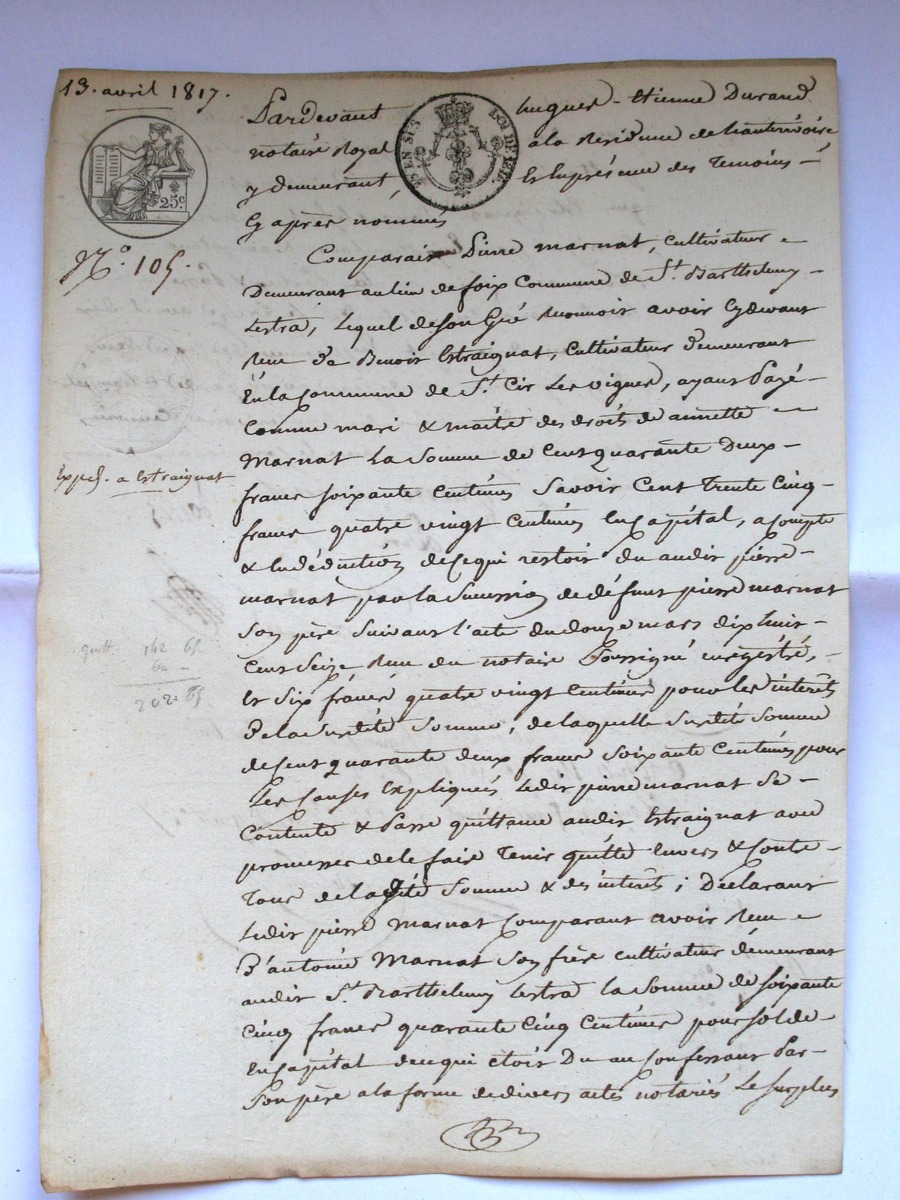 13. avril 1817.
25c
EN SUS
LOI DE 1816
N.o 105.
Expéd. a Estraignat
quitt. 142 65
60 -
202.65
Pardevant hugues - Etienne Durand
notaire Royal a la Residence de hauterivoire
y demeurant, Et En présence des Temoins -
Cy après nommés
Comparait Pierre marnat, cultivateur -
Demeurant au lieu de foix Commune de St. Barthelemy -
Lestra, Lequel de son Gré Reconnoit avoir cy devant
Reçu de Benoit Estraignat, cultivateur demeurant
En la Commune de St. Cir Les vignes, ayant Payé -
Comme mari & maitre des droits de annette -
Marnat La Somme de Cent quarante Deux -
francs soixante Centimes Savoir Cent Trente Cinq -
francs quatre vingt Centimes En Capital, a compte
& En déduction de ce qui restoit du audit pierre -
marnat par la Succession de défunt pierre marnat
Son père Suivant l'acte du douze mars dix huit -
Cent Seize Reçu du notaire Soussigné enregistré,
Et Six francs quatre vingt Centimes pour les interets
De la Susdite Somme, de laquelle Susdite Somme
de Cent quarante deux francs Soixante Centimes pour
Les Causes Expliquées Ledit pierre marnat Se -
Contente & Passe quittance audit Estraignat avec
promesses de le faire Tenir quitte Envers & Contre -
Tous de la dite Somme & des interets ; Déclarant
Ledit pierre Marnat Comparant avoir Reçu -
D'antoine Marnat Son frère cultivateur demeurant
audit St. Barthelemy Lestra la Somme de Soixante
Cinq francs quarante Cinq Centimes pour solde -
En Capital de ce qui étoit Du au Confessant Par -
Son père a la forme de divers actes notariés Le Surplus